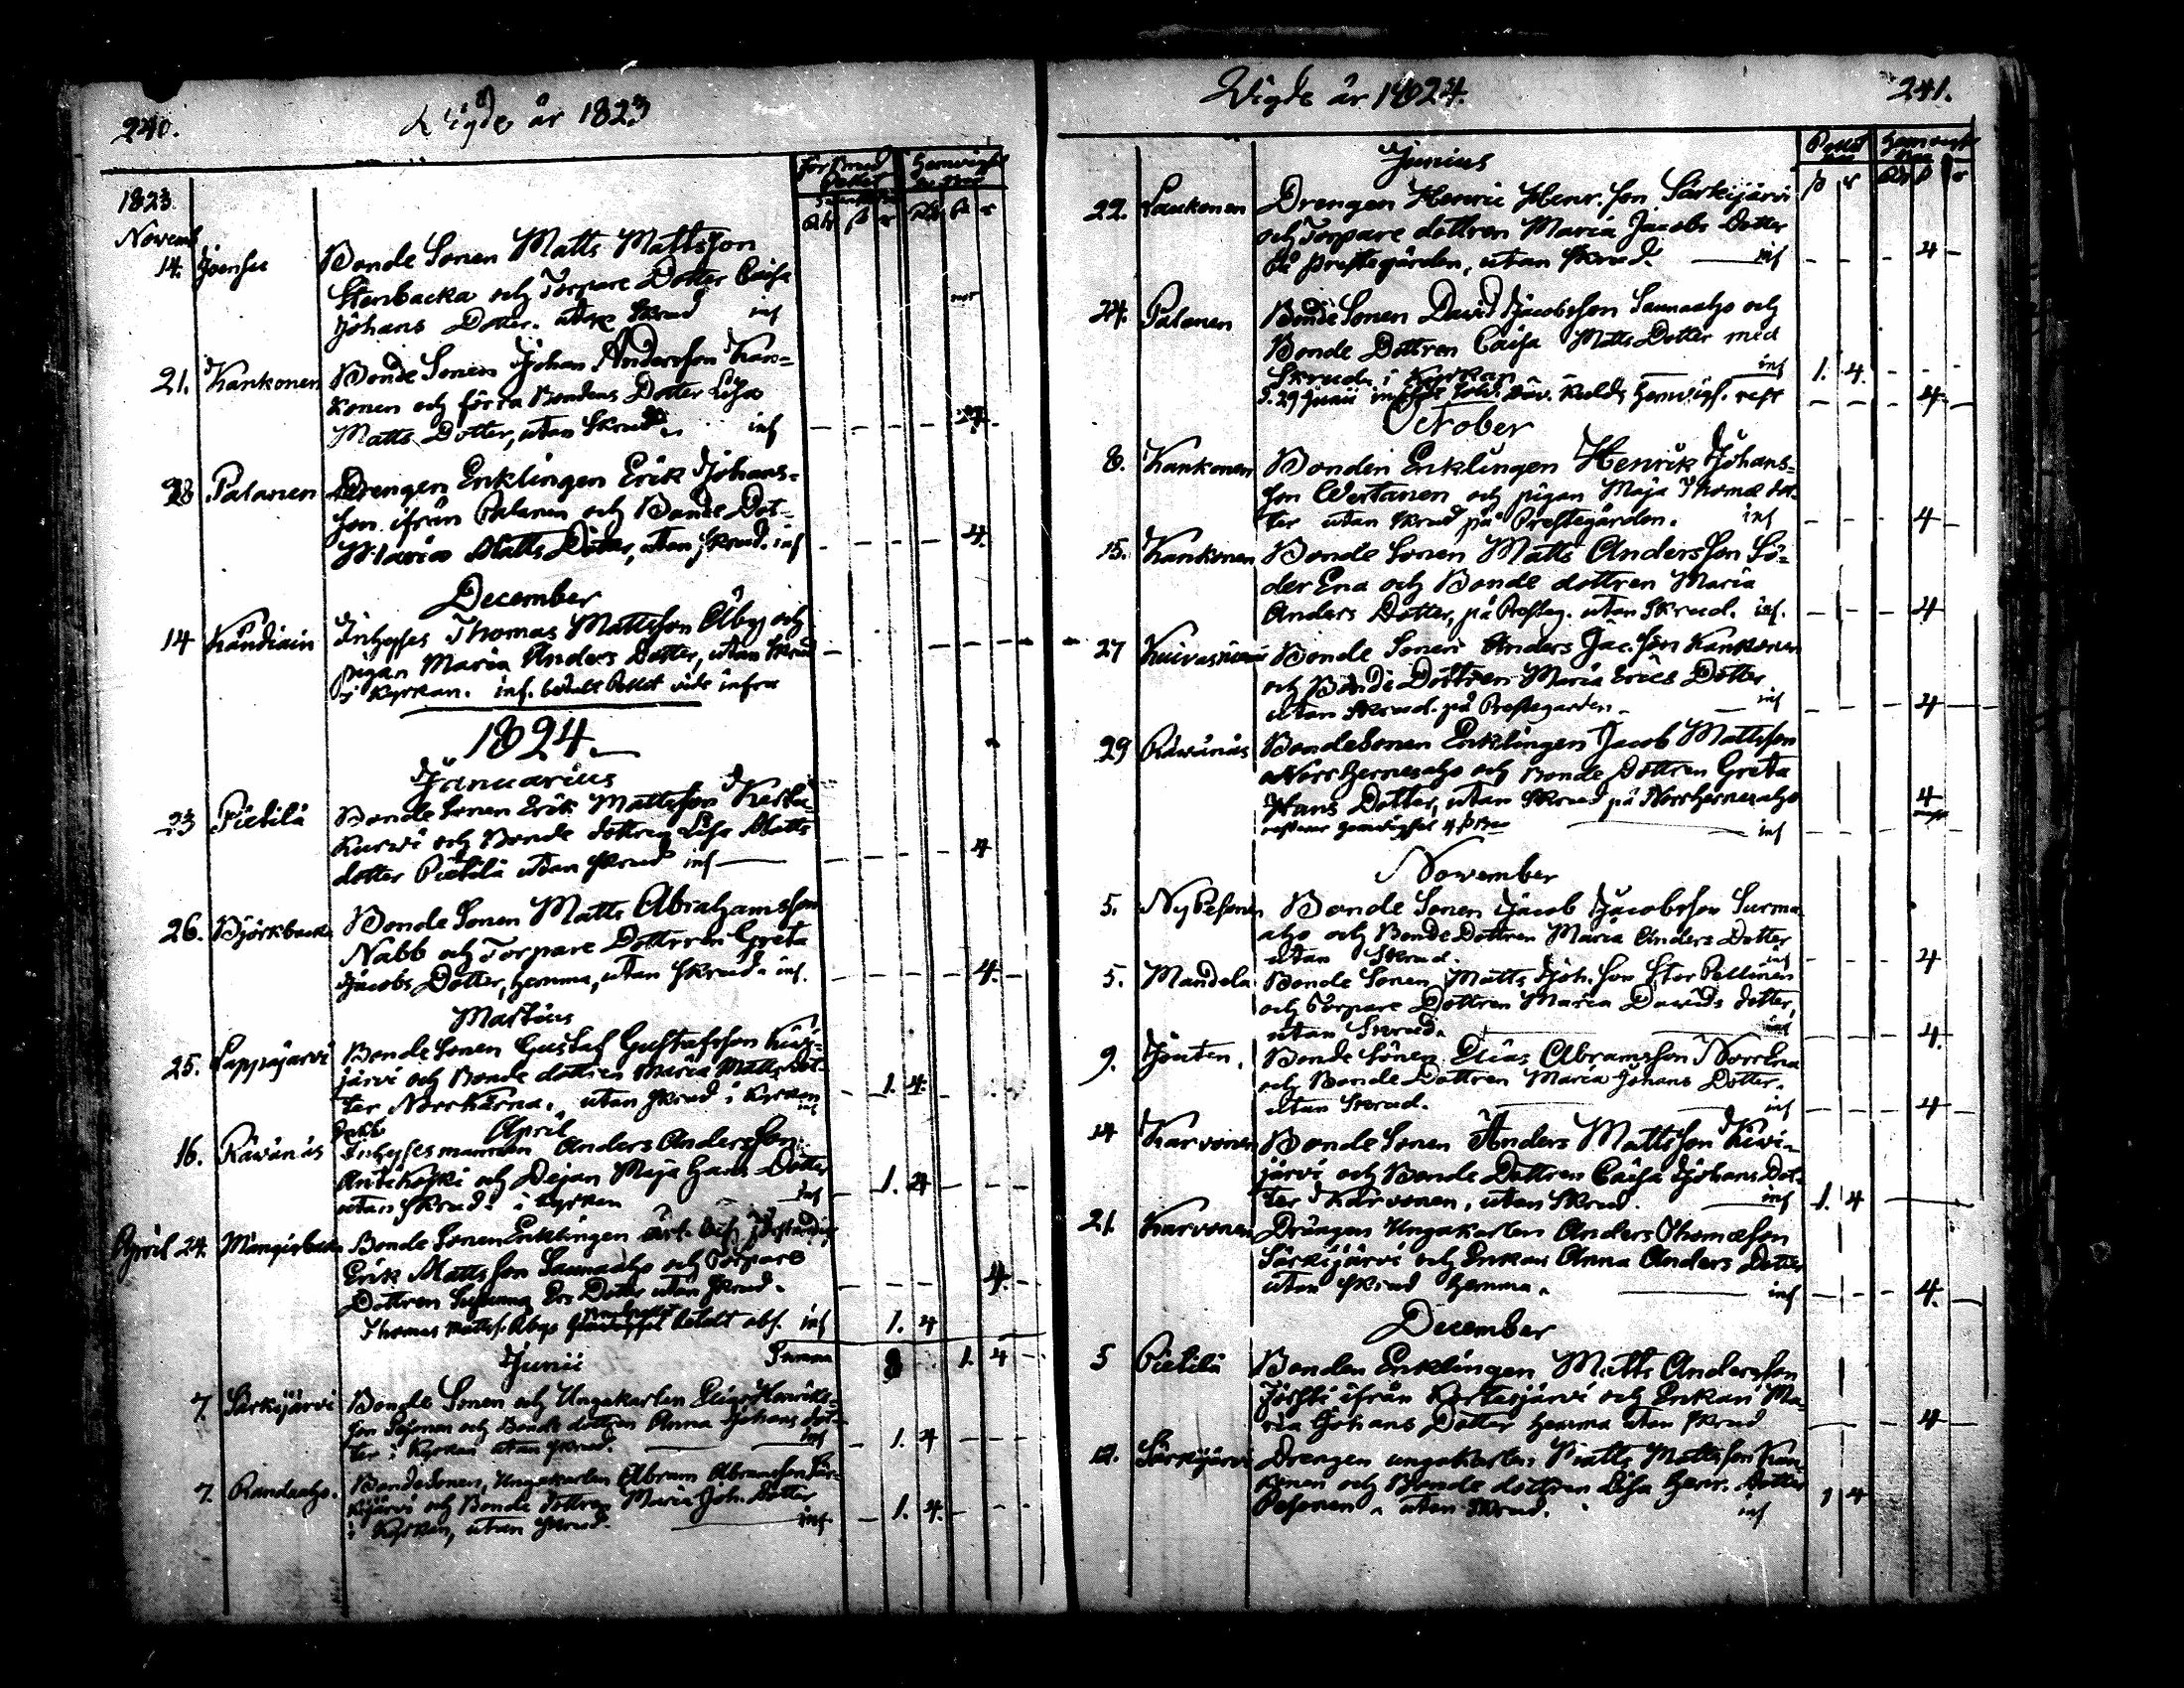 240.
Wigde år 1823
1823.
Novemb
14. Joensu Bonde Sonen Matts Mattsson
Stenbacka och Torpare Dotter Caisa
Johans Dotter. utan Skrud inf
21. Kankonen Bonde Sonen Johan Andersson Kan-
konen och förra Bondens Dotter Lisa
Matts Dotter, utan Skrud. inf 4.
28 Palanen Drengen Enklingen Erik Johans-
son ifrån Palanen och Bonde Dot-
Maria Matts Dotter, utan Skrud. inf 4.
December
14 Inhyses Thomas Mattsson Åby och
pigan Maria Anders Dotter, utan Skrud
i Kyrkan. inf. betalt Pellet vide infra
1824.
Januarius
23 Pietilä Bonde Sonen Erik Mattsson
Kurvi och Bonde dottren Lisa Matts
dotter Pietilä utan Skrud inf 4
26. Björkbacka Bonde Sonen Matts Abrahamsson
Nabb och Torpare Dottren Greta
Jacobs Dotter, hemma, utan Skrud. inf. 4.
Martius
25. Lappajärvi Bonde Sonen Gustaf Gustafsson
järvi och Bonde dottren Maria Matts Dot-
ter Norrkärna. utan Skrud i Kyrkan inf 1. 4.
April
16. Räwänäs Inhysesmannen Anders Andersson
och Dejan Maja Hans Dotter
utan Skrud. i Kyrkan inf 1. 4
April 24. Bonde Sonen Enklingen
Erik Mattsson Saunaaho och Torpare
Dottren Susanna Ers Dotter utan Skrud. 4.
Thomas Matts. Åby betalt inf 1. 4
Junii Summa 8 1. 4
7. Särkijärvi Bonde Sonen och Ungakarlen Elias Henriks-
son Pesonen och Bonde dottren Anna Johans dot-
ter i Kyrkan utan Skrud. inf 1. 4
7. Randaaho. Bonde Sonen, Ungakarlen Abram Abramsson Sär-
kijärvi och Bonde Dottren Maria Joh. Dotter
i Kyrkan, utan Skrud. inf 1. 4.
Wigde år 1824.
241.
Junius
22. Laukonen Drengen Henric Henr. Son Särkijärvi
och Torpare dottren Maria Jacobs Dotter
på Prestegården, utan Skrud. inf 4
24. Palanen Bonde Sonen David Jacobsson Saunaaho och
Bonde Dottren Caisa Matts Dotter med
Skrud. i Kyrkan inf 1. 4.
d. 29 Junii 4
October
8. Kankonen Bonden Enklingen Henrik Johans-
son Wertanen och pigan Maja Thomæ dot-
ter utan Skrud på Prestegården. inf 4
15. Kankonen Bonde Sonen Matts Andersson Sö-
der Ena och Bonde dottren Maria
Anders Dotter, på Presteg. utan Skrud. inf. 4
27 Bonde Sonen Anders Jac. Son Kankonen
och Bonde Dottren Maria Erics Dotter
utan Skrud. på Prestegarden. inf 4
29 Räwänäs Bonde Sonen Enklingen Jacob Mattsson
Norrhernesaho och Bonde Dottren Greta
Hans Dotter, utan Skrud på Norrhernesaho 4
inf
November
5. Nypesonen Bonde Sonen Jacob Jacobsson Surma
aho och Bonde Dottren Maria Anders Dotter
utan Skrud. inf 4
5. Mandela Bonde Sonen Matts Joh. Son Stor Pellinen
och Torpare Dottren Maria Davids dotter,
utan Skrud. inf 4.
9. Jouten. Bonde Sonen Elias Abramsson Norr Ena
och Bonde Dottren Maria Johans Dotter.
utan Skrud. inf 4
14 Karvonen Bonde Sonen Anders Mattsson Kivi-
järvi och Bonde Dottren Caisa Johans Dot-
ter Karvonen, utan Skrud. inf 1. 4
21. Karvonen Drängen Ungakarlen Anders Thomæson
Särkijärvi och Enkan Anna Anders Dotter
utan Skrud hemma. inf 4.
December
5 Pietilä Bonden Enklingen Matts Andersson
ifrån Kortesjärvi och Enkan Ma-
ria Johans Dotter hemma utan Skrud 4
12. Särkijärvi Drengen ungakarlen Matts Mattsson Kan-
konen och Bonde dottren Lisa Henr. Dotter
Pesonen. utan Skrud. inf 1 4